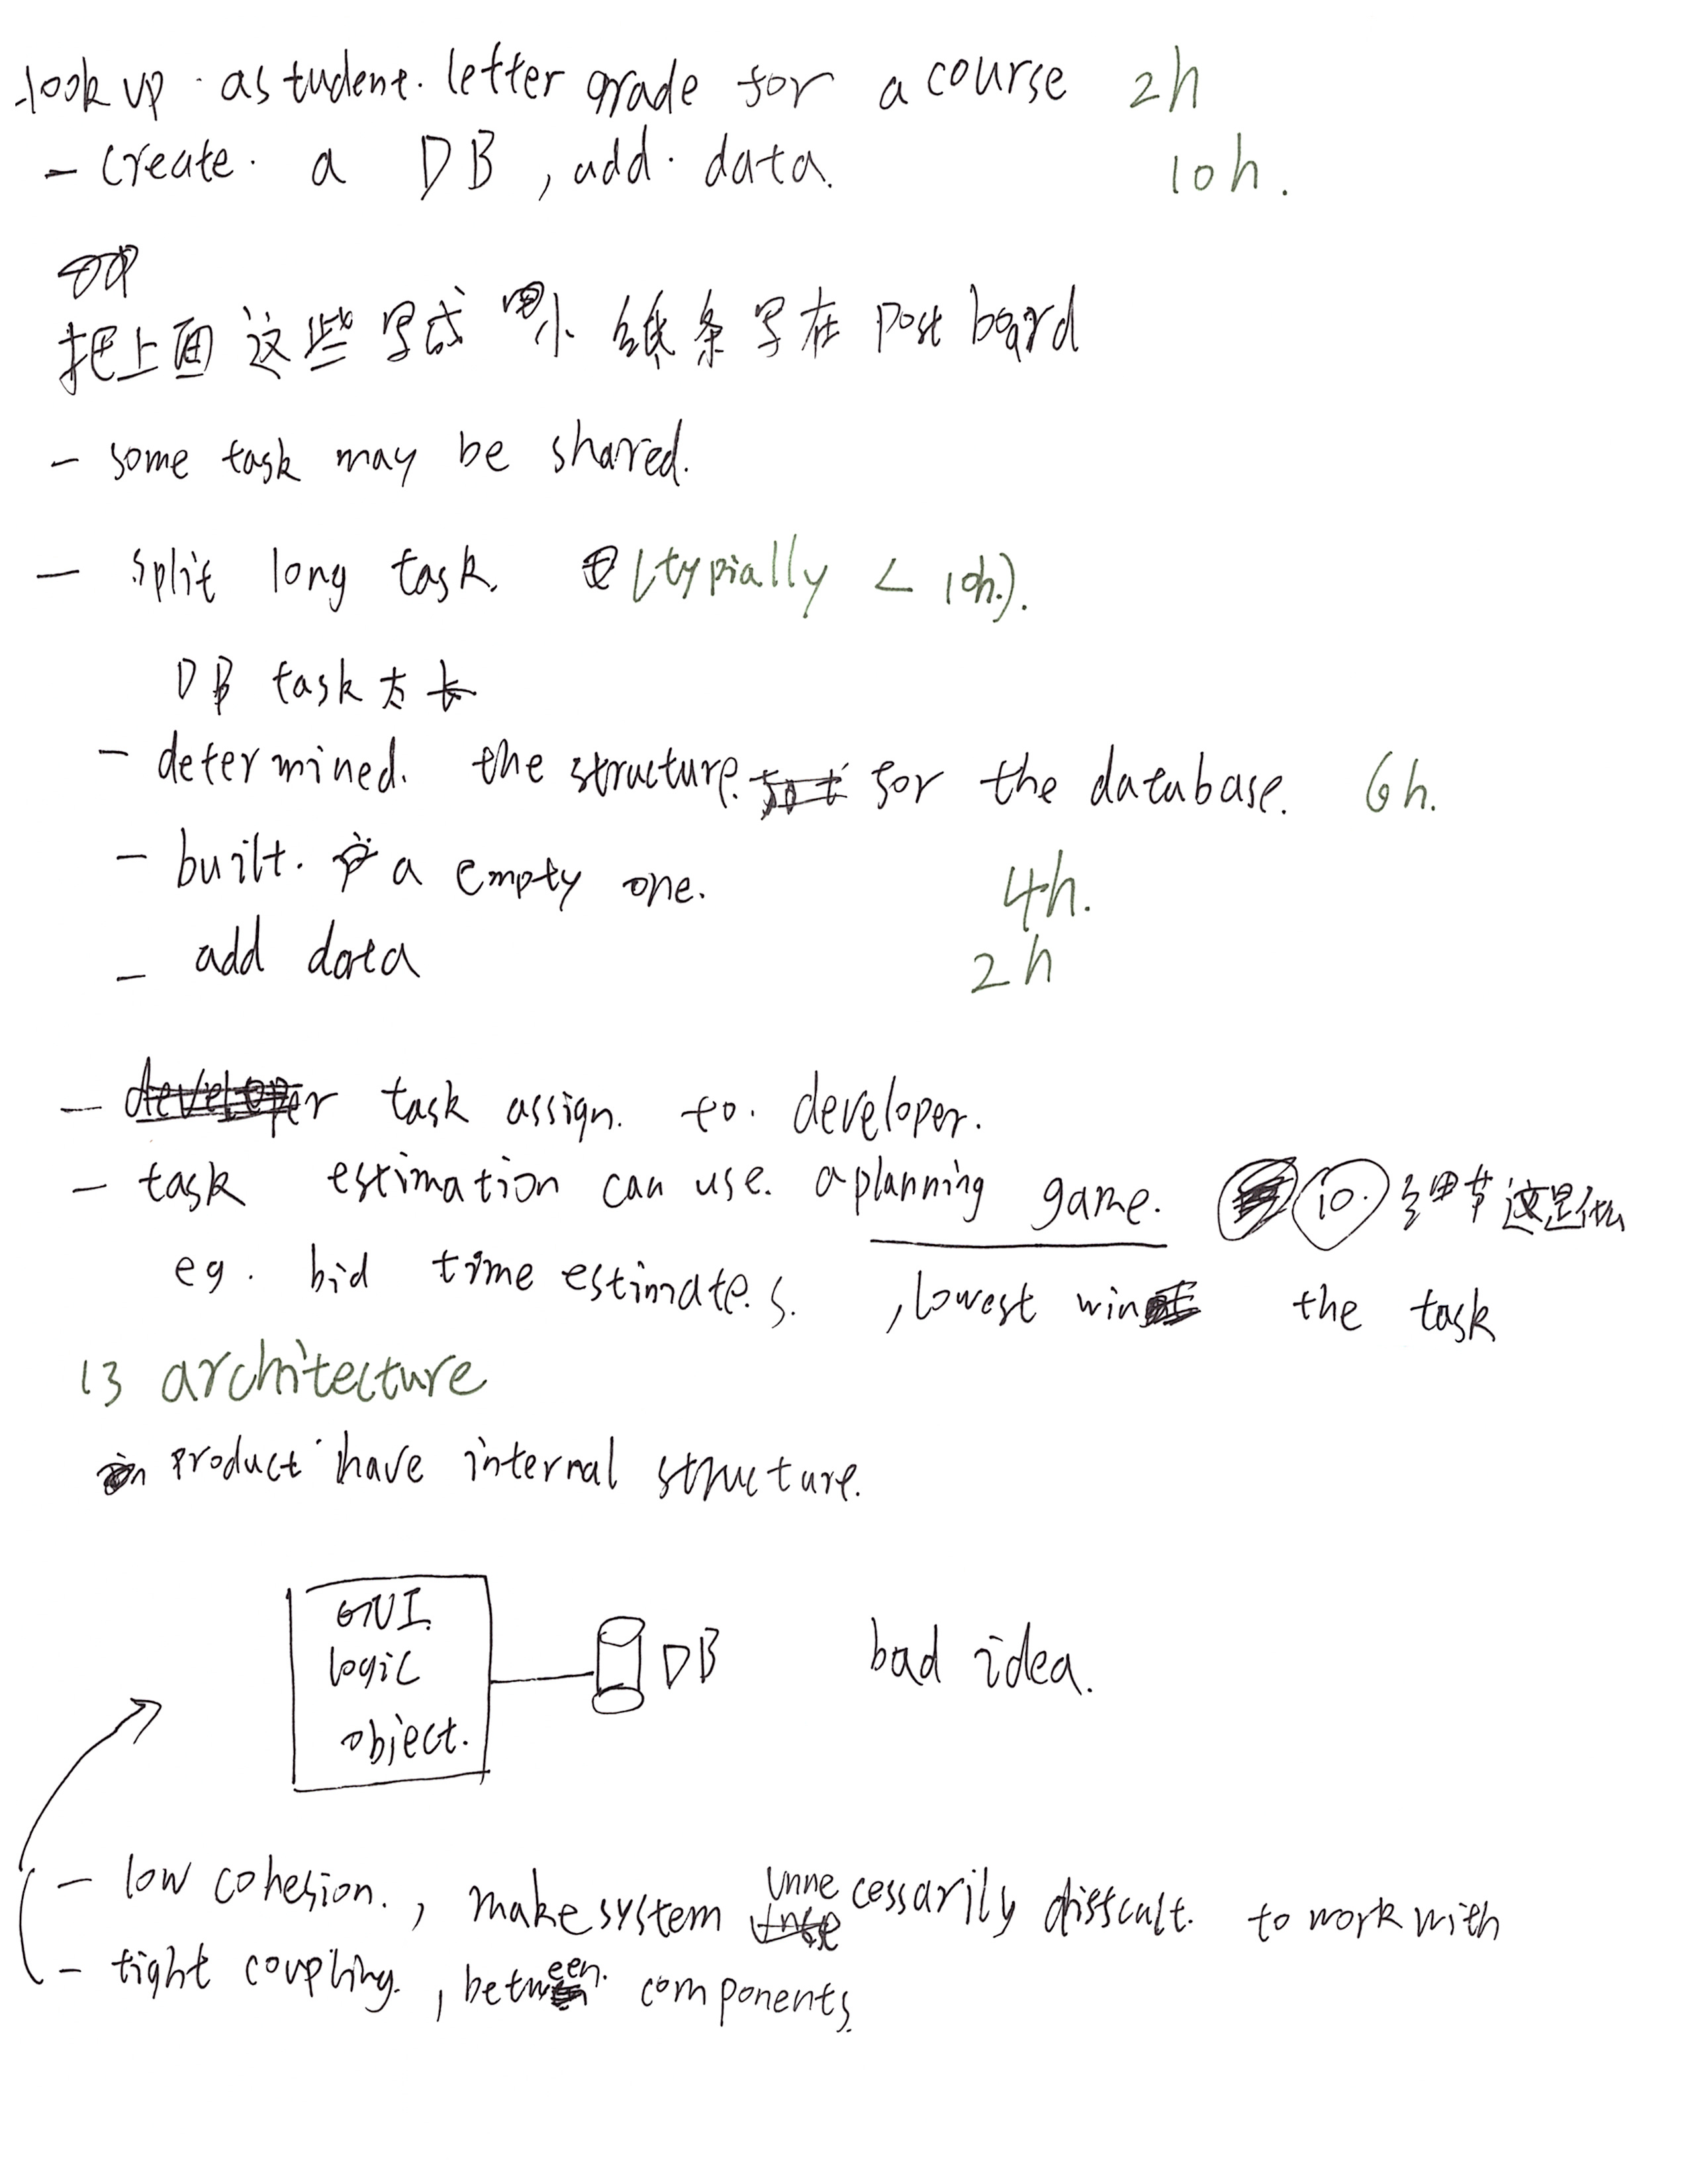 - look up a student letter grade for a course 2h
- create a DB, add data. 10h.
把上面这些写成 小纸条写在 post board
- some task may be shared.
- split long task. (typially < 10h.).
DB task 太长
- determined. the structure. for the database. 6h.
- built. a empty one. 4h.
- add data 2h
- task assign. to. developer.
- task estimation can use. a planning game. 10. 细节这是什么
eg. bid time estimates. , lowest win the task
13 architecture
product have internal structure.
GUI.
logic
object.
DB bad idea.
- low cohesion., make system unnecessarily diffcult. to work with
- tight coupling., between. components.